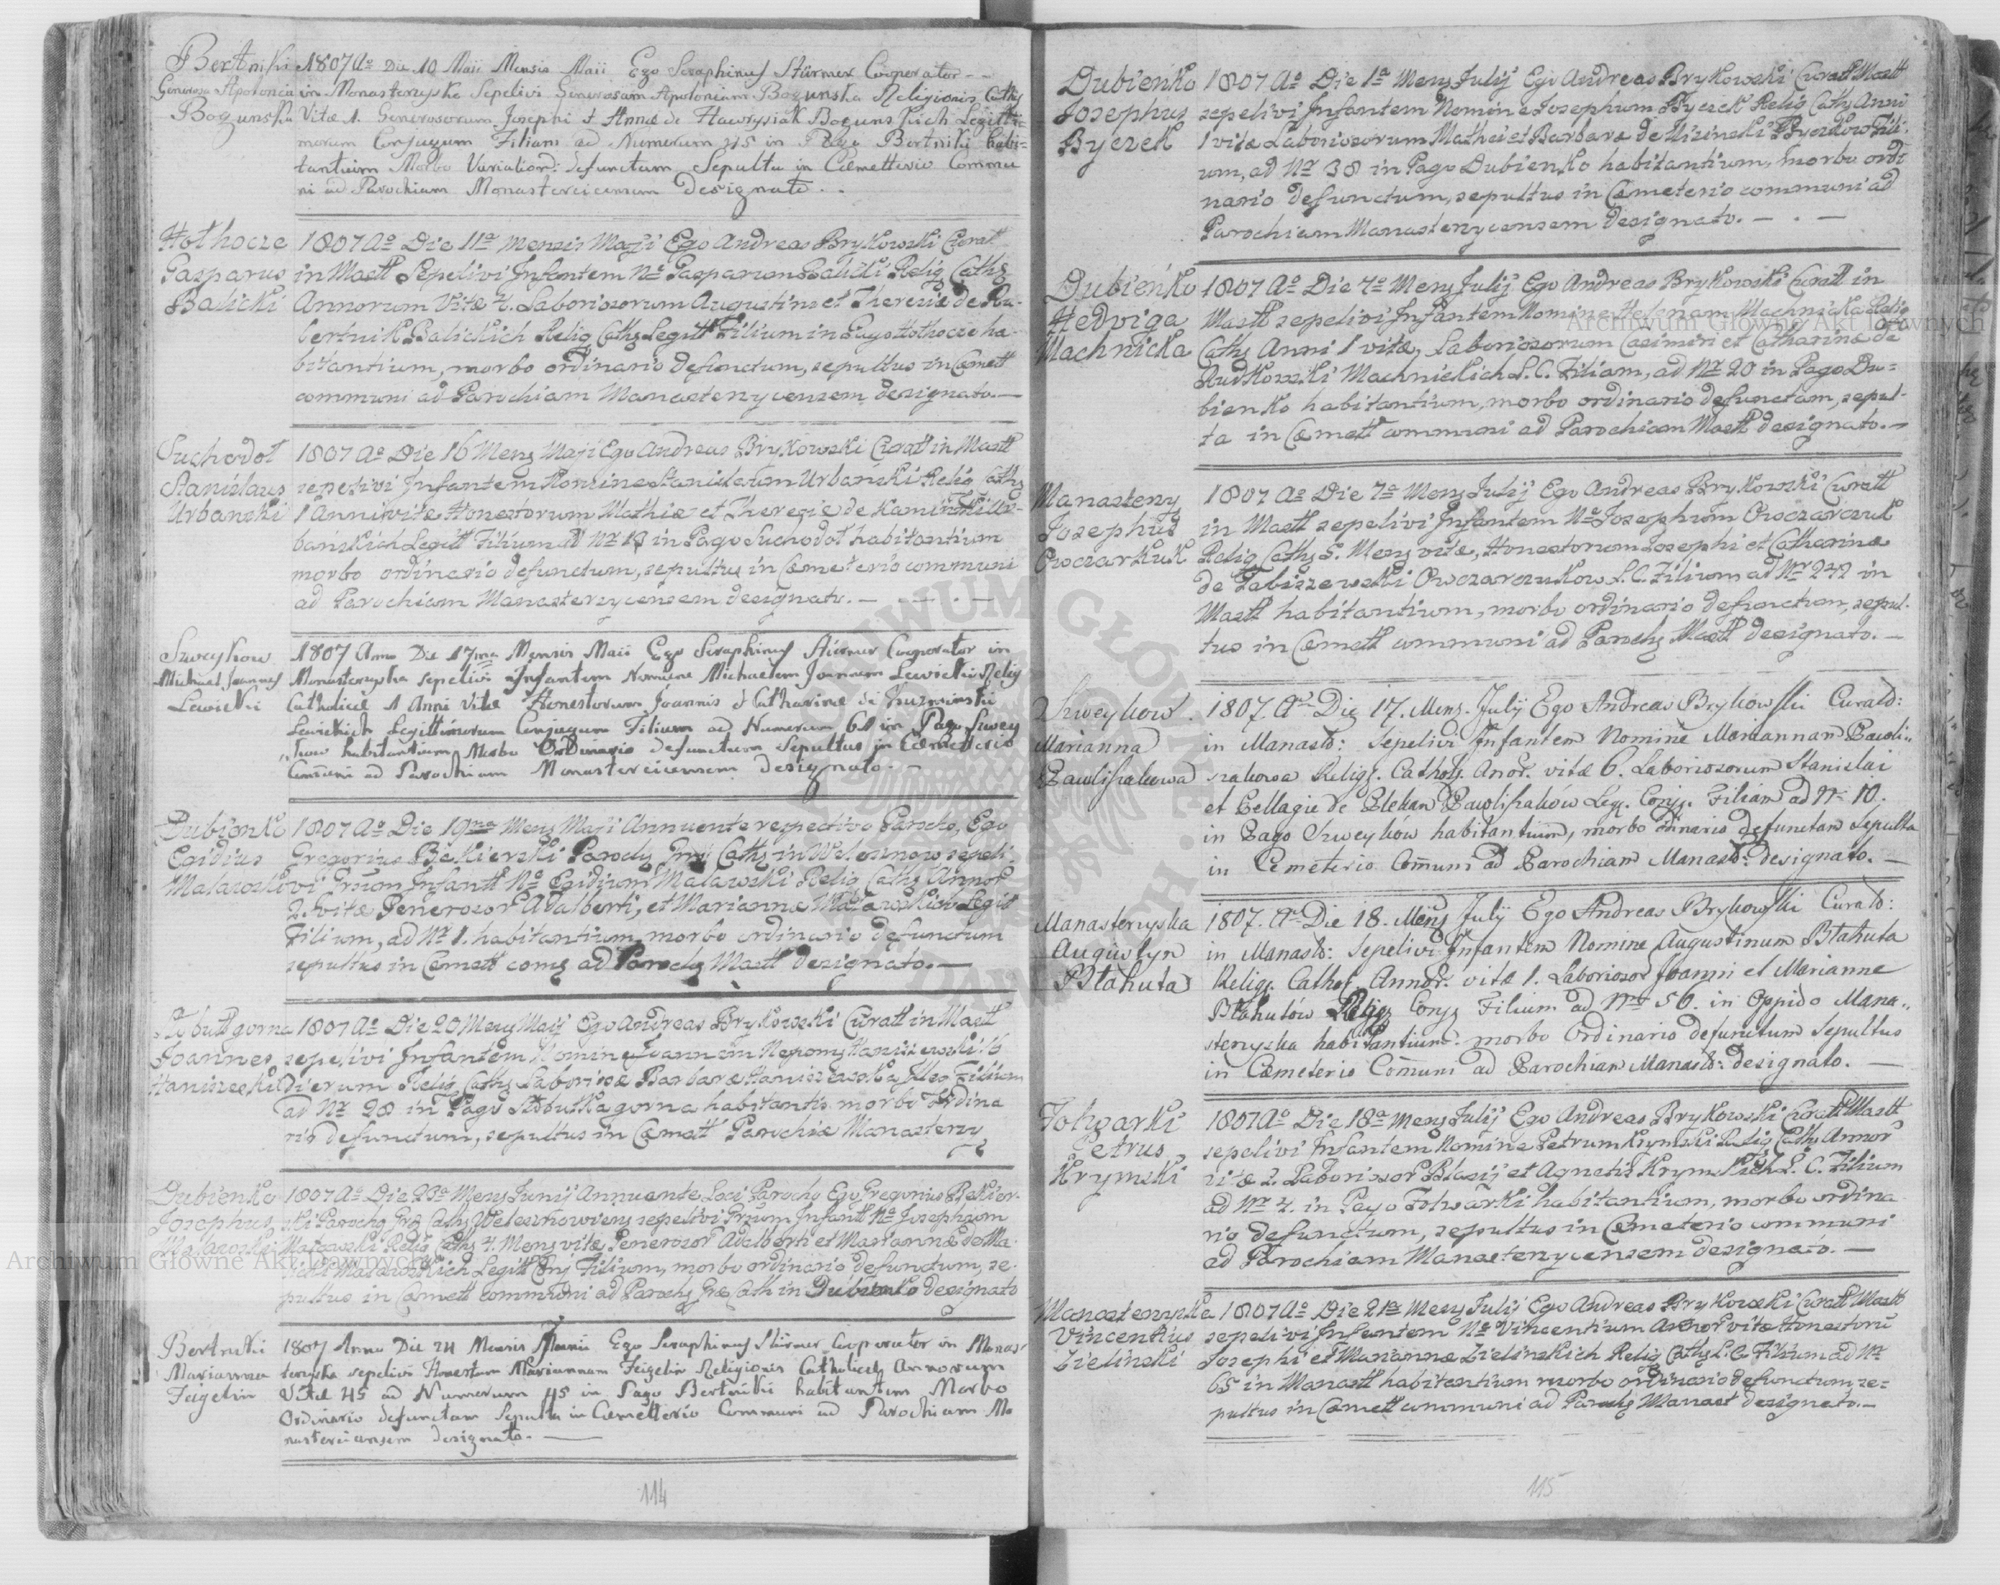 Bertniki 1807 Ao Die 10 Maii Mensis Maii Ego Seraphinus Stürmer Cooperator
Generosa Apolonia in Monasteryska Sepelivi Generosam Apoloniam Bogunska Religionis Cath
Bogunska Vitæ 1. Generosorum Josephi et Annæ de Hawrysiak Bogunskich Legitti-
morum Conjugum Filiam ad Numerum 45 in Pago Bertniki habi-
tantium Morbo defunctam Sepulta in Cæmetterio Commu
ni ad Parochiam Monastercicensem designato.
Hothocze 1807 Ao Die 11a Mensis Maji Ego Andreas Brykowski Curat
Gasparus in Mastt Sepelivi Infantem No Gasparum Balicki Relig Cath
Balicki Annorum Vitæ 4. Laboriosorum Augustini et Theresiæ de Ru-
bertnik Balickich Relig Cath Legitt Filium in Pago Hothocze ha-
bitantium, morbo ordinario defunctum, sepultus in Cæmett
communi ad Parochiam Manasterzycensem designato.—
Suchodoł 1807 Ao Die 16 Mens Maji Ego Andreas Brykowski Curatt in Mastt
Stanislaus sepelivi Infantem Nomine Stanislaum Urbański Relig Cath
Urbanski 1 Anni vitæ Honestorum Mathiæ et Theresiæ de Kaminski Ur-
bańskich Legitt Filium ad Nr 18 in Pago Suchodoł habitantium
morbo ordinario defunctum, sepultus in Cæmeterio communi
ad Parochiam Manasterzycensem designato.—
Szweykow 1807 Anno Die 17ma Mensis Maii Ego Seraphinus Stürmer Cooperator in
Michael Joannes Monasteryska sepelivi Infantem Nomine Michaelem Joannem Lewicki Relig
Lewicki Catholicæ 1 Anni Vitæ Honestorum Joannis et Catharinæ de Kuzminski
Lewickich Legittimorum Conjugum Filium ad Numerum 60 in Pago Szwey
kow habitantium Morbo Ordinario defunctum Sepultus in Cæmetterio
Comuni ad Parochiam Monastercicensem designato.
Dubienko 1807 Ao Die 19na Mens Maji Annuente respectivo Parocho, Ego
Egidius Gregorius Bekierski Paroch Græ Cath in Weleszniow sepeli-
Malawski vi Infantt No Egidium Malawski Relig Cath Annor
2. vitæ Generosor Adalberti, et Mariannæ Malawskich Legit
Filium, ad Nr 1. habitantium, morbo ordinario defunctum
sepultus in Cæmett com ad Paroch Mastt designato.—
Słobutka gorna 1807 Ao Die 20 Mens Maji Ego Andreas Brykowski Curatt in Mastt
Joannes sepelivi Infantem Nomine Joannem Nepom Haniszewski
Haniszeski Dierum Relig Cath Laboriosæ Barbaræ Haniszewska Filium
ad Nr 28 in Pago Słobutka gorna habitantis morbo ordina
rio defunctum, sepultus in Cæmett Parochiæ Manasterzy
Dubienko 1807 Ao Die 23a Mens Junij Annuente Loci Parocho Ego Gregorius Bekier-
Josephus ski Paroch Græ Cath Weleszniowiens sepelivi Infantt No Josephum
Malawski Malawski Relig Cath 4. Mens vitæ Generosor Adalberti et Mariannæ de
Malawskich Legitt Conj Filium, morbo ordinario defunctum, se-
pultus in Cæmett communi ad Paroch Græ Cath in Dubienko designato
Bertniki 1807 Anno Die 24 Mensis Junii Ego Seraphinus Stürmer Cooperator in Monas-
Marianna teryska sepelivi Honestam Mariannam Feigelin Religionis Catholicæ Annorum
Feigelin Vitæ 45 ad Numerum 45 in Pago Bertniki habitantem Morbo
Ordinario defunctam Sepulta in Cæmetterio Communi ad Parochiam Mo
nastercicensem designato.—
114
Dubienko 1807 Ao Die 1a Mens Julij Ego Andreas Brykowski Curatt Mastt
Josephus sepelivi Infantem Nomine Josephum Byczek Relig Cath Anni
Byczek 1 vitæ Laboriosorum Mathei et Barbaræ de Byczkow Fili-
um, ad Nr 38 in Pago Dubienko habitantium, morbo ordi
nario defunctum, sepultus in Cæmeterio communi ad
Parochiam Manasterzycensem designato.—
Dubieńko 1807 Ao Die 7a Mens Julij Ego Andreas Brykowski Curatt in
Hedviga Mastt sepelivi Infantem Nomine Helenam Machnicka Relig
Machnicka Cath Anni 1 vitæ, Laboriosorum Casimiri et Catharinæ de
Rudkowski Machnickich L. C. Filiam, ad Nr 20 in Pago Du-
bienko habitantium, morbo ordinario defunctam, sepul-
ta in Cæmett communi ad Parochiam Mastt designato.—
Manasterzy 1807 Ao Die 7a Mens Julij Ego Andreas Brykowski Curatt
Josephus in Mastt sepelivi Infantem No Josephum Owczarczuk
Owczarkuk Relig Cath 5. Mens vitæ, Honestorum Josephi et Catharinæ
de Fabiszewski Owczarczukow L. C. Filium ad Nr 242 in
Mastt habitantium, morbo ordinario defunctum, sepul-
tus in Cæmett communi ad Paroch Mastt designato.—
Szweykow. 1807. Ao Die 17. Mens. July Ego Andreas Brykowski Curatt:
Marianna in Manast: Sepelivi Infantem Nomine Mariannam Pawli-
Pawlisakowa szakowa Relig. Cathol. Anor. vitæ 6. Laboriosorum Stanislai
et Pellagie de Plekan Pawlisaków Leg. Conj. Filiam ad Nr 10.
in Pago Szweyków habitantium, morbo ordinario defunctam Sepulta
in Cemeterio Comuni ad Parochiam Manast: designato.—
Manasteryska 1807. Ao Die 18. Mens July Ego Andreas Brykowski Curatt:
Augustyn in Manast: Sepelivi Infantem Nomine Augustinum Błahuta
Błahuta Relig. Cathol. Annor. vitæ 1. Laborioso Joanni et Marianne
Błahutów Conj Filium ad Nro 56. in Oppido Mana-
steryska habitantium. morbo Ordinario defunctum Sepultus
in Cæmeterio Comuni ad Parochiam Manast: designato.—
Folwarki 1807 Ao Die 18a Mens Julij Ego Andreas Brykowski Curatt Mastt
Petrus sepelivi Infantem Nomine Petrum Krymski Relig Cath Annor
Krymski vitæ 2 Laboriosor Blasij et Agnetis Krymskich L. C. Filium
ad Nr 4. in Pago Folwarki habitantium, morbo ordina
rio defunctum, sepultus in Cæmeterio communi
ad Parochiam Manasterzycensem designato.—
Manasteryska 1807 Ao Die 21a Mens Julij Ego Andreas Brykowski Curatt Mastt
Vincentius sepelivi Infantem No Vincentium Annor vitæ Honestoru
Zielinski Josephi et Mariannæ Zielinskich Relig Cath L. C. Filium ad Nr
65 in Manastt habitantium morbo ordinario defunctum, se-
pultus in Cæmett communi ad Paroch Manast designato.—
115
Archiwum Główne Akt Dawnych
Archiwum Główne Akt Dawnych
ARCHIWUM GŁÓWNE AKT DAWNYCH